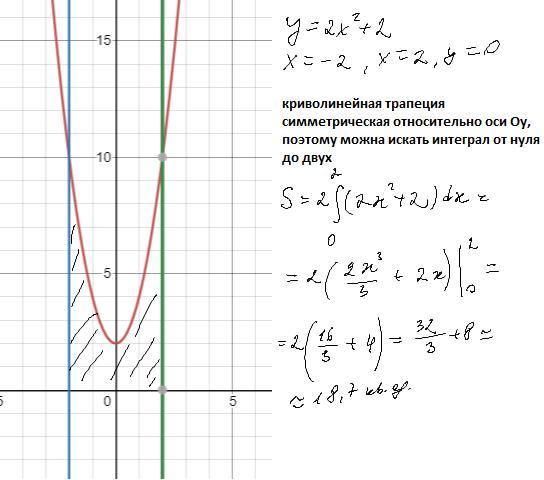 15
10
5
0
5
5
y = 2x² + 2
x = -2 , x = 2 , y = 0
криволинейная трапеция
симметрическая относительно оси Oy,
поэтому можна искать интеграл от нуля
до двух
S = 2 ∫₀² (2x² + 2) dx =
= 2 ( 2x³/3 + 2x ) |₀² =
= 2 ( 16/3 + 4 ) = 32/3 + 8 ≃
≃ 18,7 кв.ед.